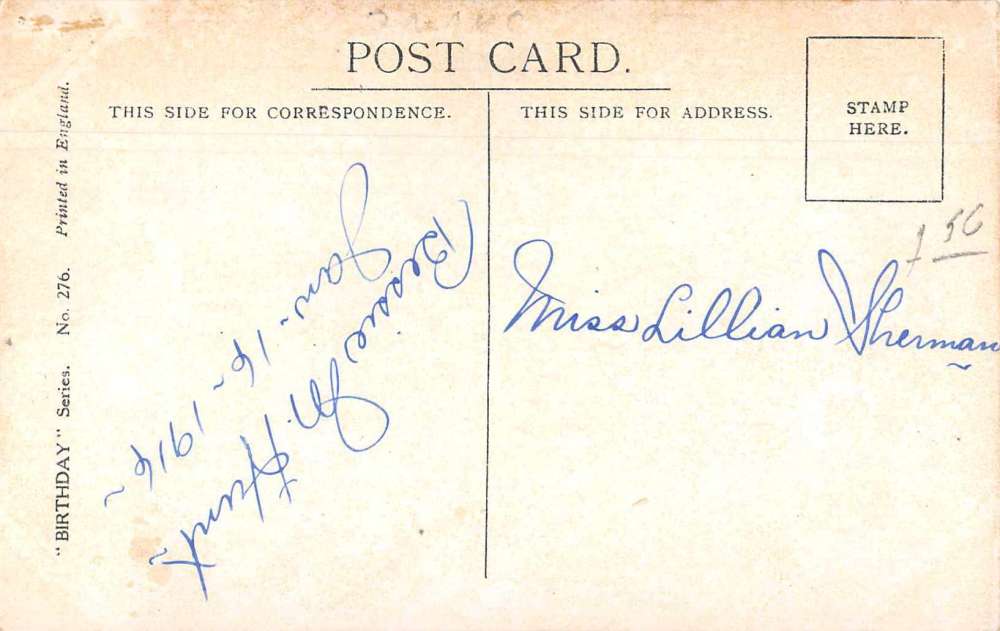 POST CARD.
THIS SIDE FOR CORRESPONDENCE.
THIS SIDE FOR ADDRESS.
STAMP
HERE.
"BIRTHDAY" Series. No. 276. Printed in England.
Bessie M. Hunt
Jan. 14 - 1914 ~
Miss Lillian Sherman
1 50